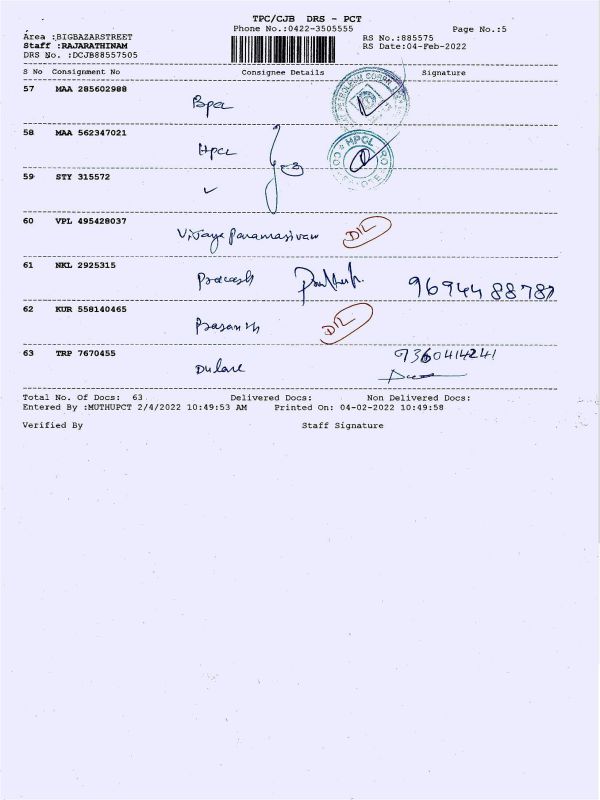 TPC/CJB DRS - PCT
Phone No.:0422-3505555 Page No.:5
Area :BIGBAZARSTREET RS No.:885575
Staff :RAJARATHINAM RS Date:04-Feb-2022
DRS No. :DCJB88557505
S No Consignment No Consignee Details Signature
57 MAA 285602988
Bpcl
58 MAA 562347021
Hpcl
HPCL
59 STY 315572
60 VPL 495428037
Vijaya Paramasivam D/L
61 NKL 2925315
Pracash 9694488787
62 KUR 558140465
Prasanth D/L
63 TRP 7670455 9360414241
Dulare
Total No. Of Docs: 63 Delivered Docs: Non Delivered Docs:
Entered By :MUTHUPCT 2/4/2022 10:49:53 AM Printed On: 04-02-2022 10:49:58
Verified By Staff Signature